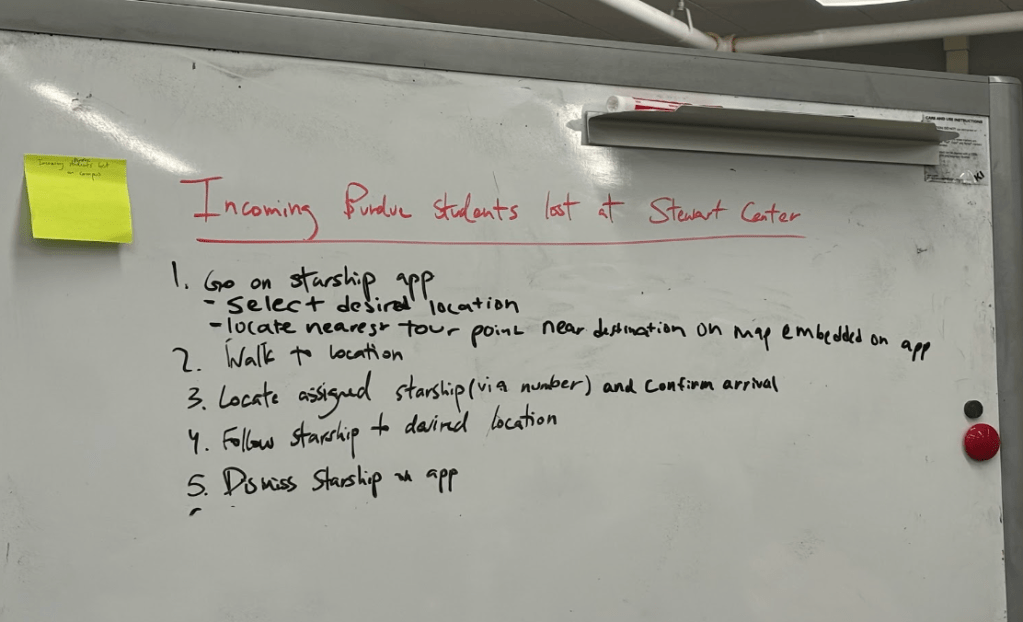 Incoming Purdue students lost
on campus
CARE AND USE INSTRUCTIONS
KI
Incoming Purdue students lost at Stewart Center
1. Go on starship app
- select desired location
- locate nearest tour point near destination on map embedded on app
2. Walk to location
3. Locate assigned starship (via number) and confirm arrival
4. Follow starship to desired location
5. Dismiss Starship on app